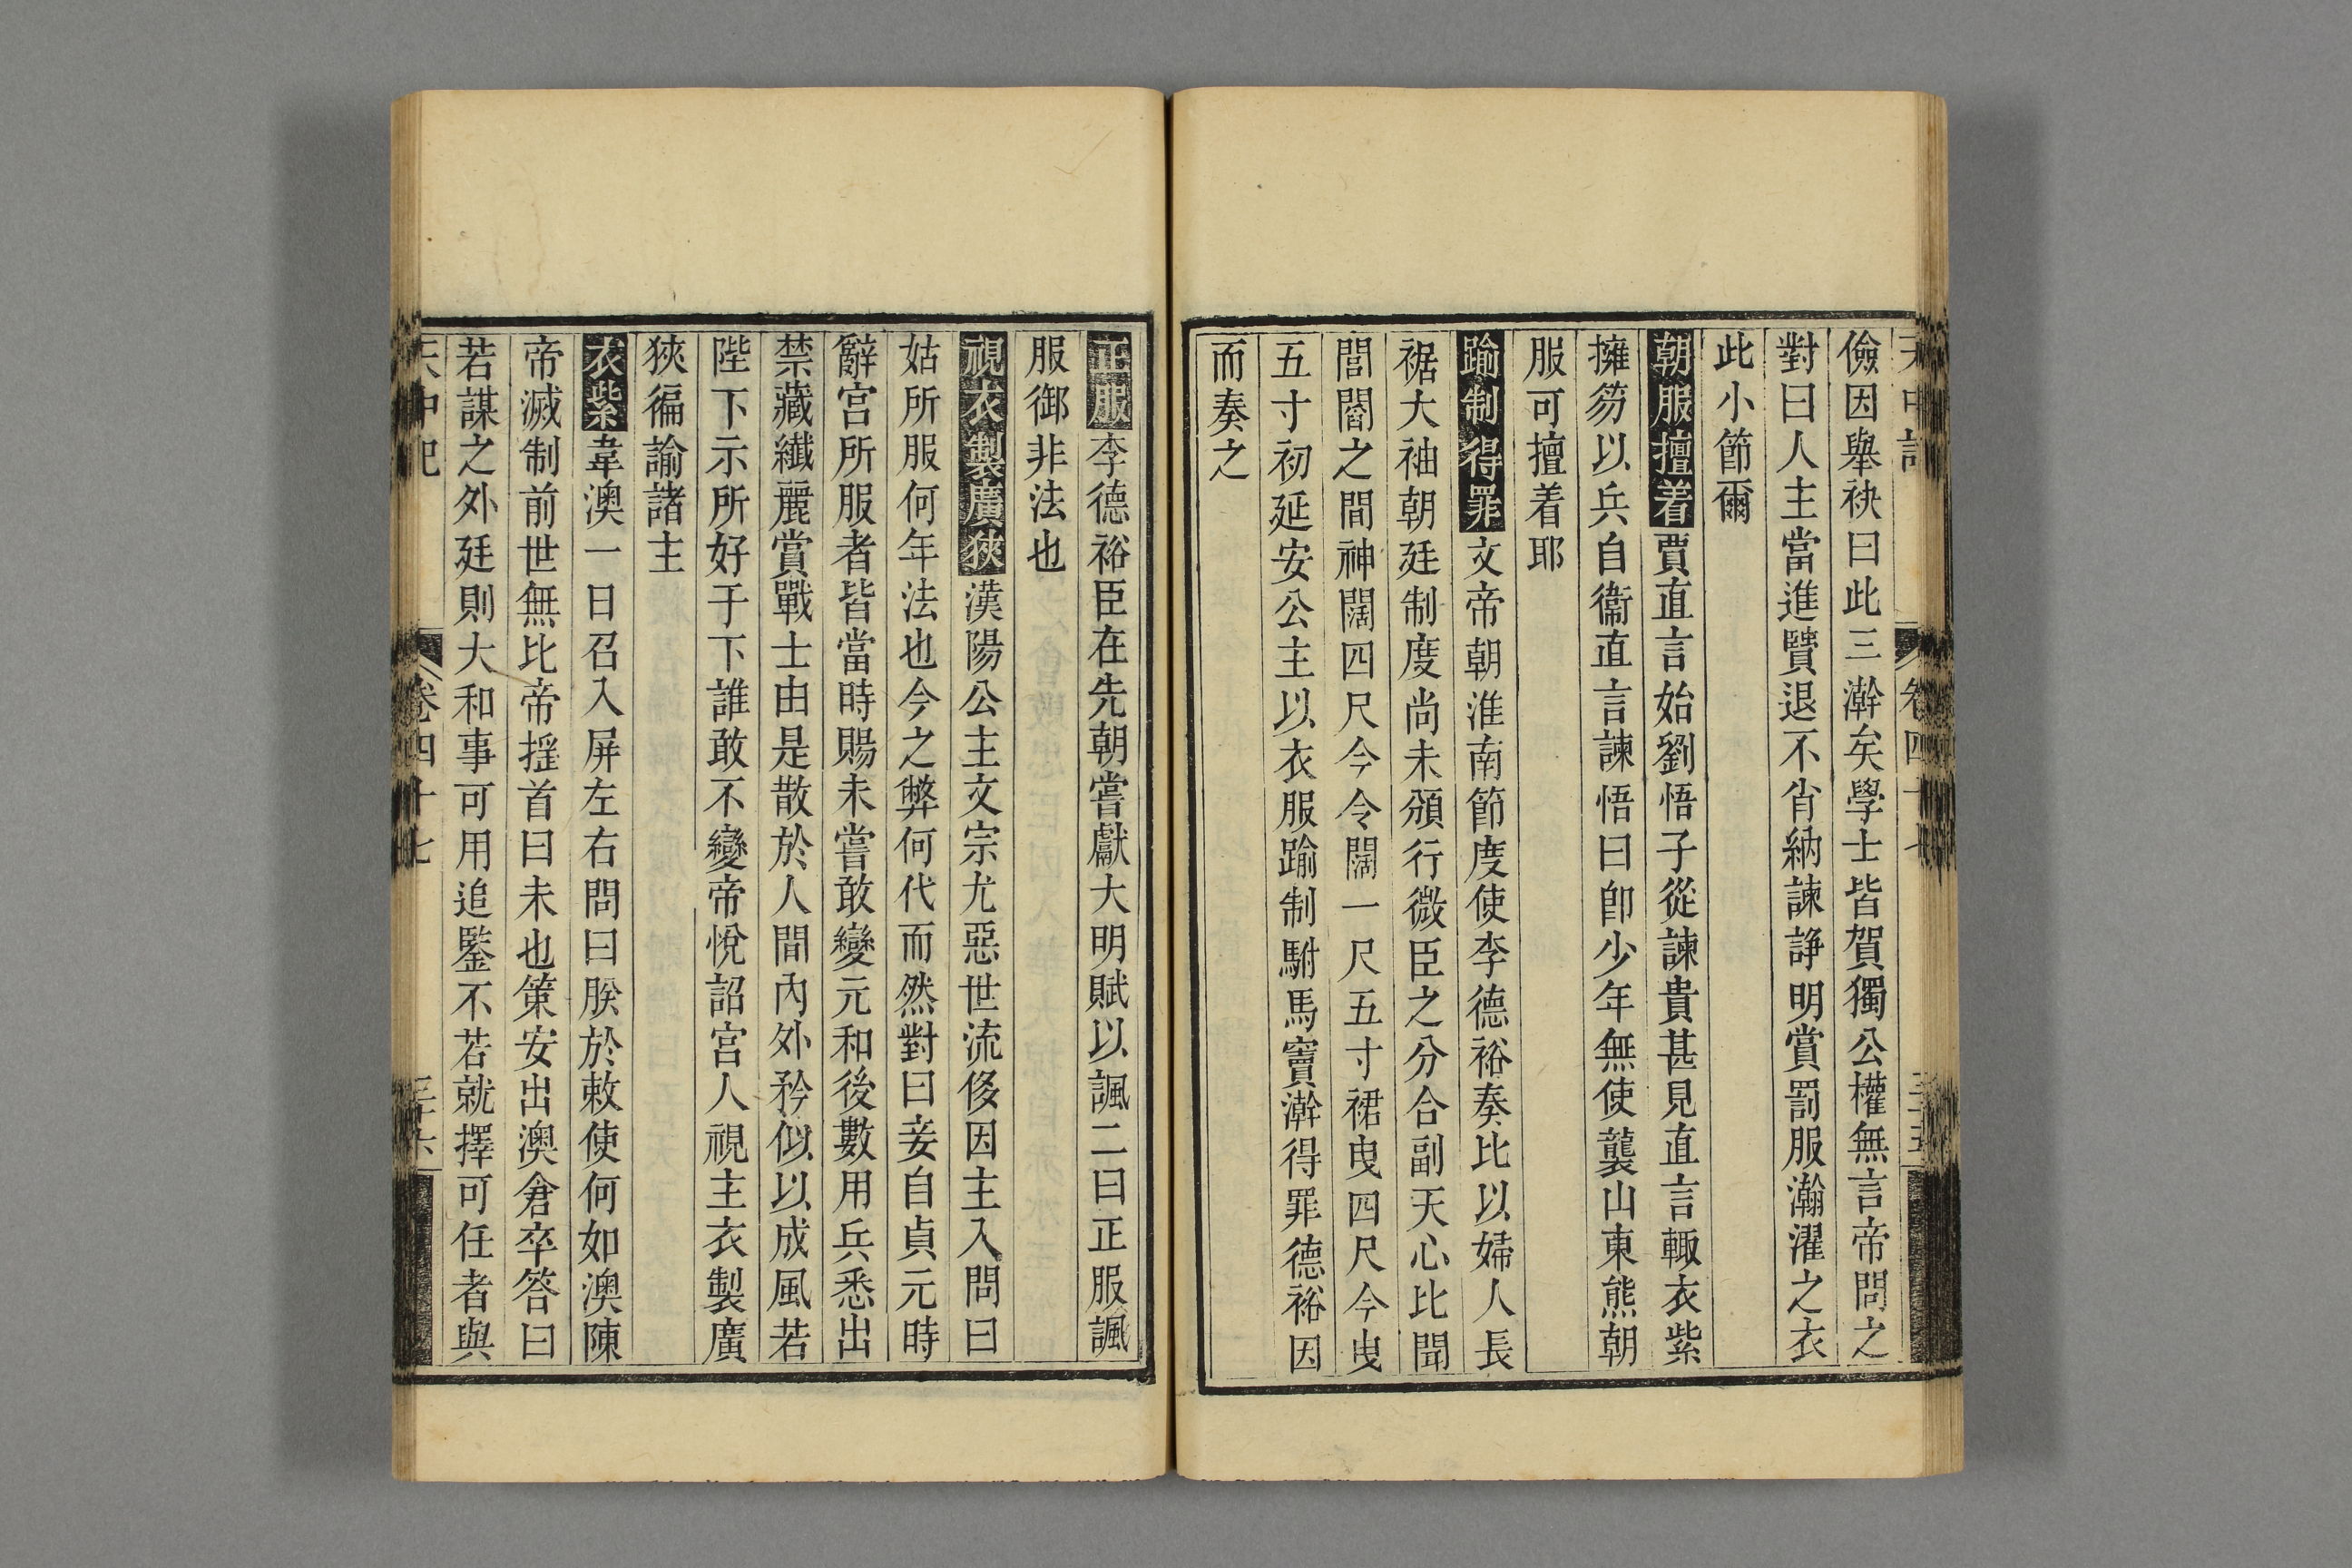 天中記 卷四十七 三十五
儉因舉袂曰此三澣矣學士皆賀獨公權無言帝問之
對曰人主當進賢退不肖納諫諍明賞罰服瀚濯之衣
此小節爾
朝服擅着賈直言始劉悟子從諫貴甚見直言輙衣紫
擁笏以兵自衞直言諫悟曰卽少年無使襲山東熊朝
服可擅着耶
踰制得罪文帝朝淮南節度使李德裕奏比以婦人長
裾大袖朝廷制度尚未頒行微臣之分合副天心比聞
閭閻之間神闊四尺今令闊一尺五寸裙曳四尺今曳
五寸初延安公主以衣服踰制駙馬竇澣得罪德裕因
而奏之
正服李德裕臣在先朝嘗獻大明賦以諷二曰正服諷
服御非法也
視衣製廣狹漢陽公主文宗尤惡世流侈因主入問曰
姑所服何年法也今之弊何代而然對曰妾自貞元時
辭宮所服者皆當時賜未嘗敢變元和後數用兵悉出
禁藏纖麗賞戰士由是散於人間內外矜似以成風若
陛下示所好于下誰敢不變帝悅詔宮人視主衣製廣
狹徧諭諸主
衣紫韋澳一日召入屏左右問曰朕於敕使何如澳陳
帝滅制前世無比帝搖首曰未也策安出澳倉卒答曰
若謀之外廷則大和事可用追鑒不若就擇可任者與
天中記 卷四十七 三十六